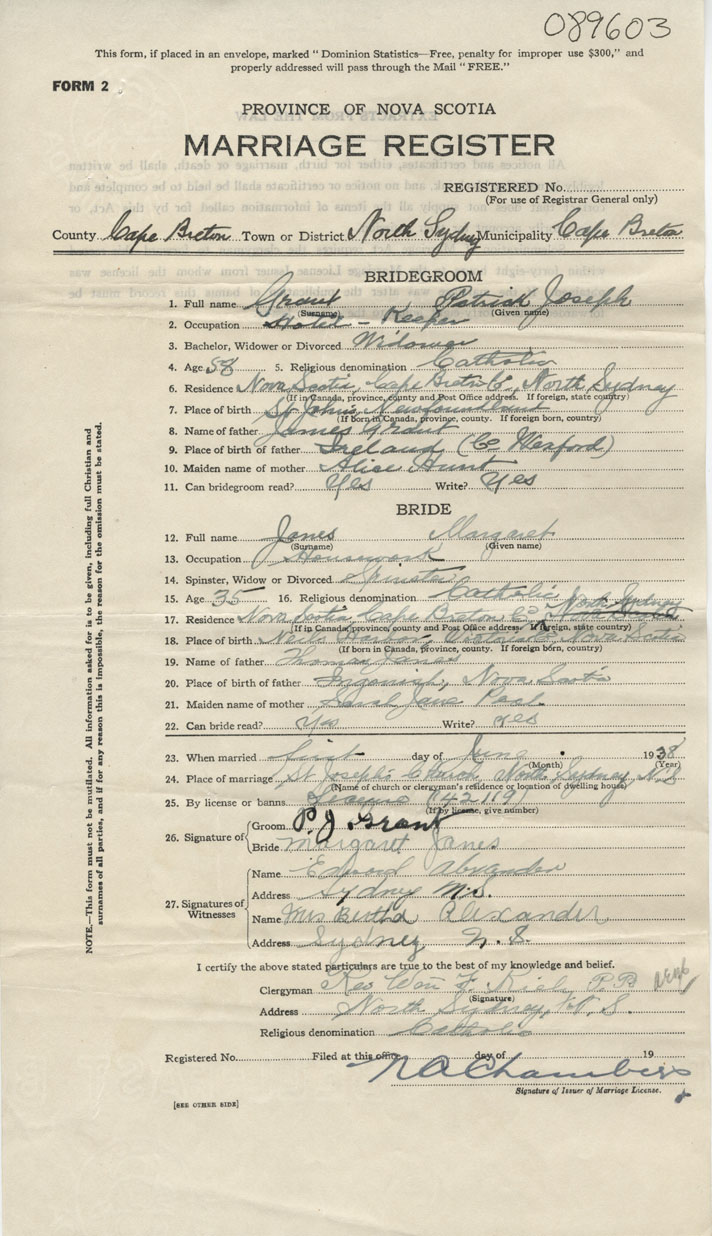 089603
This form, if placed in an envelope, marked "Dominion Statistics—Free, penalty for improper use $300," and
properly addressed will pass through the Mail "FREE."
FORM 2
PROVINCE OF NOVA SCOTIA
MARRIAGE REGISTER
REGISTERED No.
(For use of Registrar General only)
County Cape Breton Town or District North Sydney Municipality Cape Breton
BRIDEGROOM
1. Full name Grant Patrick Joseph
(Surname) (Given name)
2. Occupation Hotel - Keeper
3. Bachelor, Widower or Divorced Widower
4. Age 58 5. Religious denomination Catholic
6. Residence Nova Scotia, Cape Breton Co, North Sydney
(If in Canada, province, county and Post Office address. If foreign, state country)
7. Place of birth St John's, Newfoundland
(If born in Canada, province, county. If foreign born, country)
8. Name of father James Grant
9. Place of birth of father Ireland (Co Wexford)
10. Maiden name of mother Alice Hunt
11. Can bridegroom read? Yes Write? Yes
BRIDE
12. Full name Janes Margaret
(Surname) (Given name)
13. Occupation Housework
14. Spinster, Widow or Divorced Spinster
15. Age 35 16. Religious denomination Catholic
17. Residence Nova Scotia, Cape Breton Co North Sydney
(If in Canada, province, county and Post Office address. If foreign, state country)
18. Place of birth Neils Harbour, Victoria Co, Nova Scotia
(If born in Canada, province, county. If foreign born, country)
19. Name of father Thomas Janes
20. Place of birth of father Ingonish, Nova Scotia
21. Maiden name of mother Sarah Jane
22. Can bride read? Yes Write? yes
23. When married first day of June 1938
(Month) (Year)
24. Place of marriage St Joseph's Church, North Sydney, N.S
(Name of church or clergyman's residence or location of dwelling house)
25. By license or banns License (42119)
(If by license, give number)
26. Signature of Groom P. J Grant
Bride Margaret Janes
27. Signatures of Witnesses
Name Edward Alexander
Address Sydney N.S.
Name Mrs Bertha Alexander
Address Sydney, N. S.
I certify the above stated particulars are true to the best of my knowledge and belief.
Clergyman Rev Wm F. P.P.
(Signature)
Address North Sydney, N. S.
Religious denomination Catholic
Registered No. Filed at this office day of 19
N A Chambers
Signature of Issuer of Marriage License.
[SEE OTHER SIDE]
NOTE.—This form must not be mutilated. All information asked for is to be given, including full Christian and
surnames of all parties, and if for any reason this is impossible, the reason for the omission must be stated.